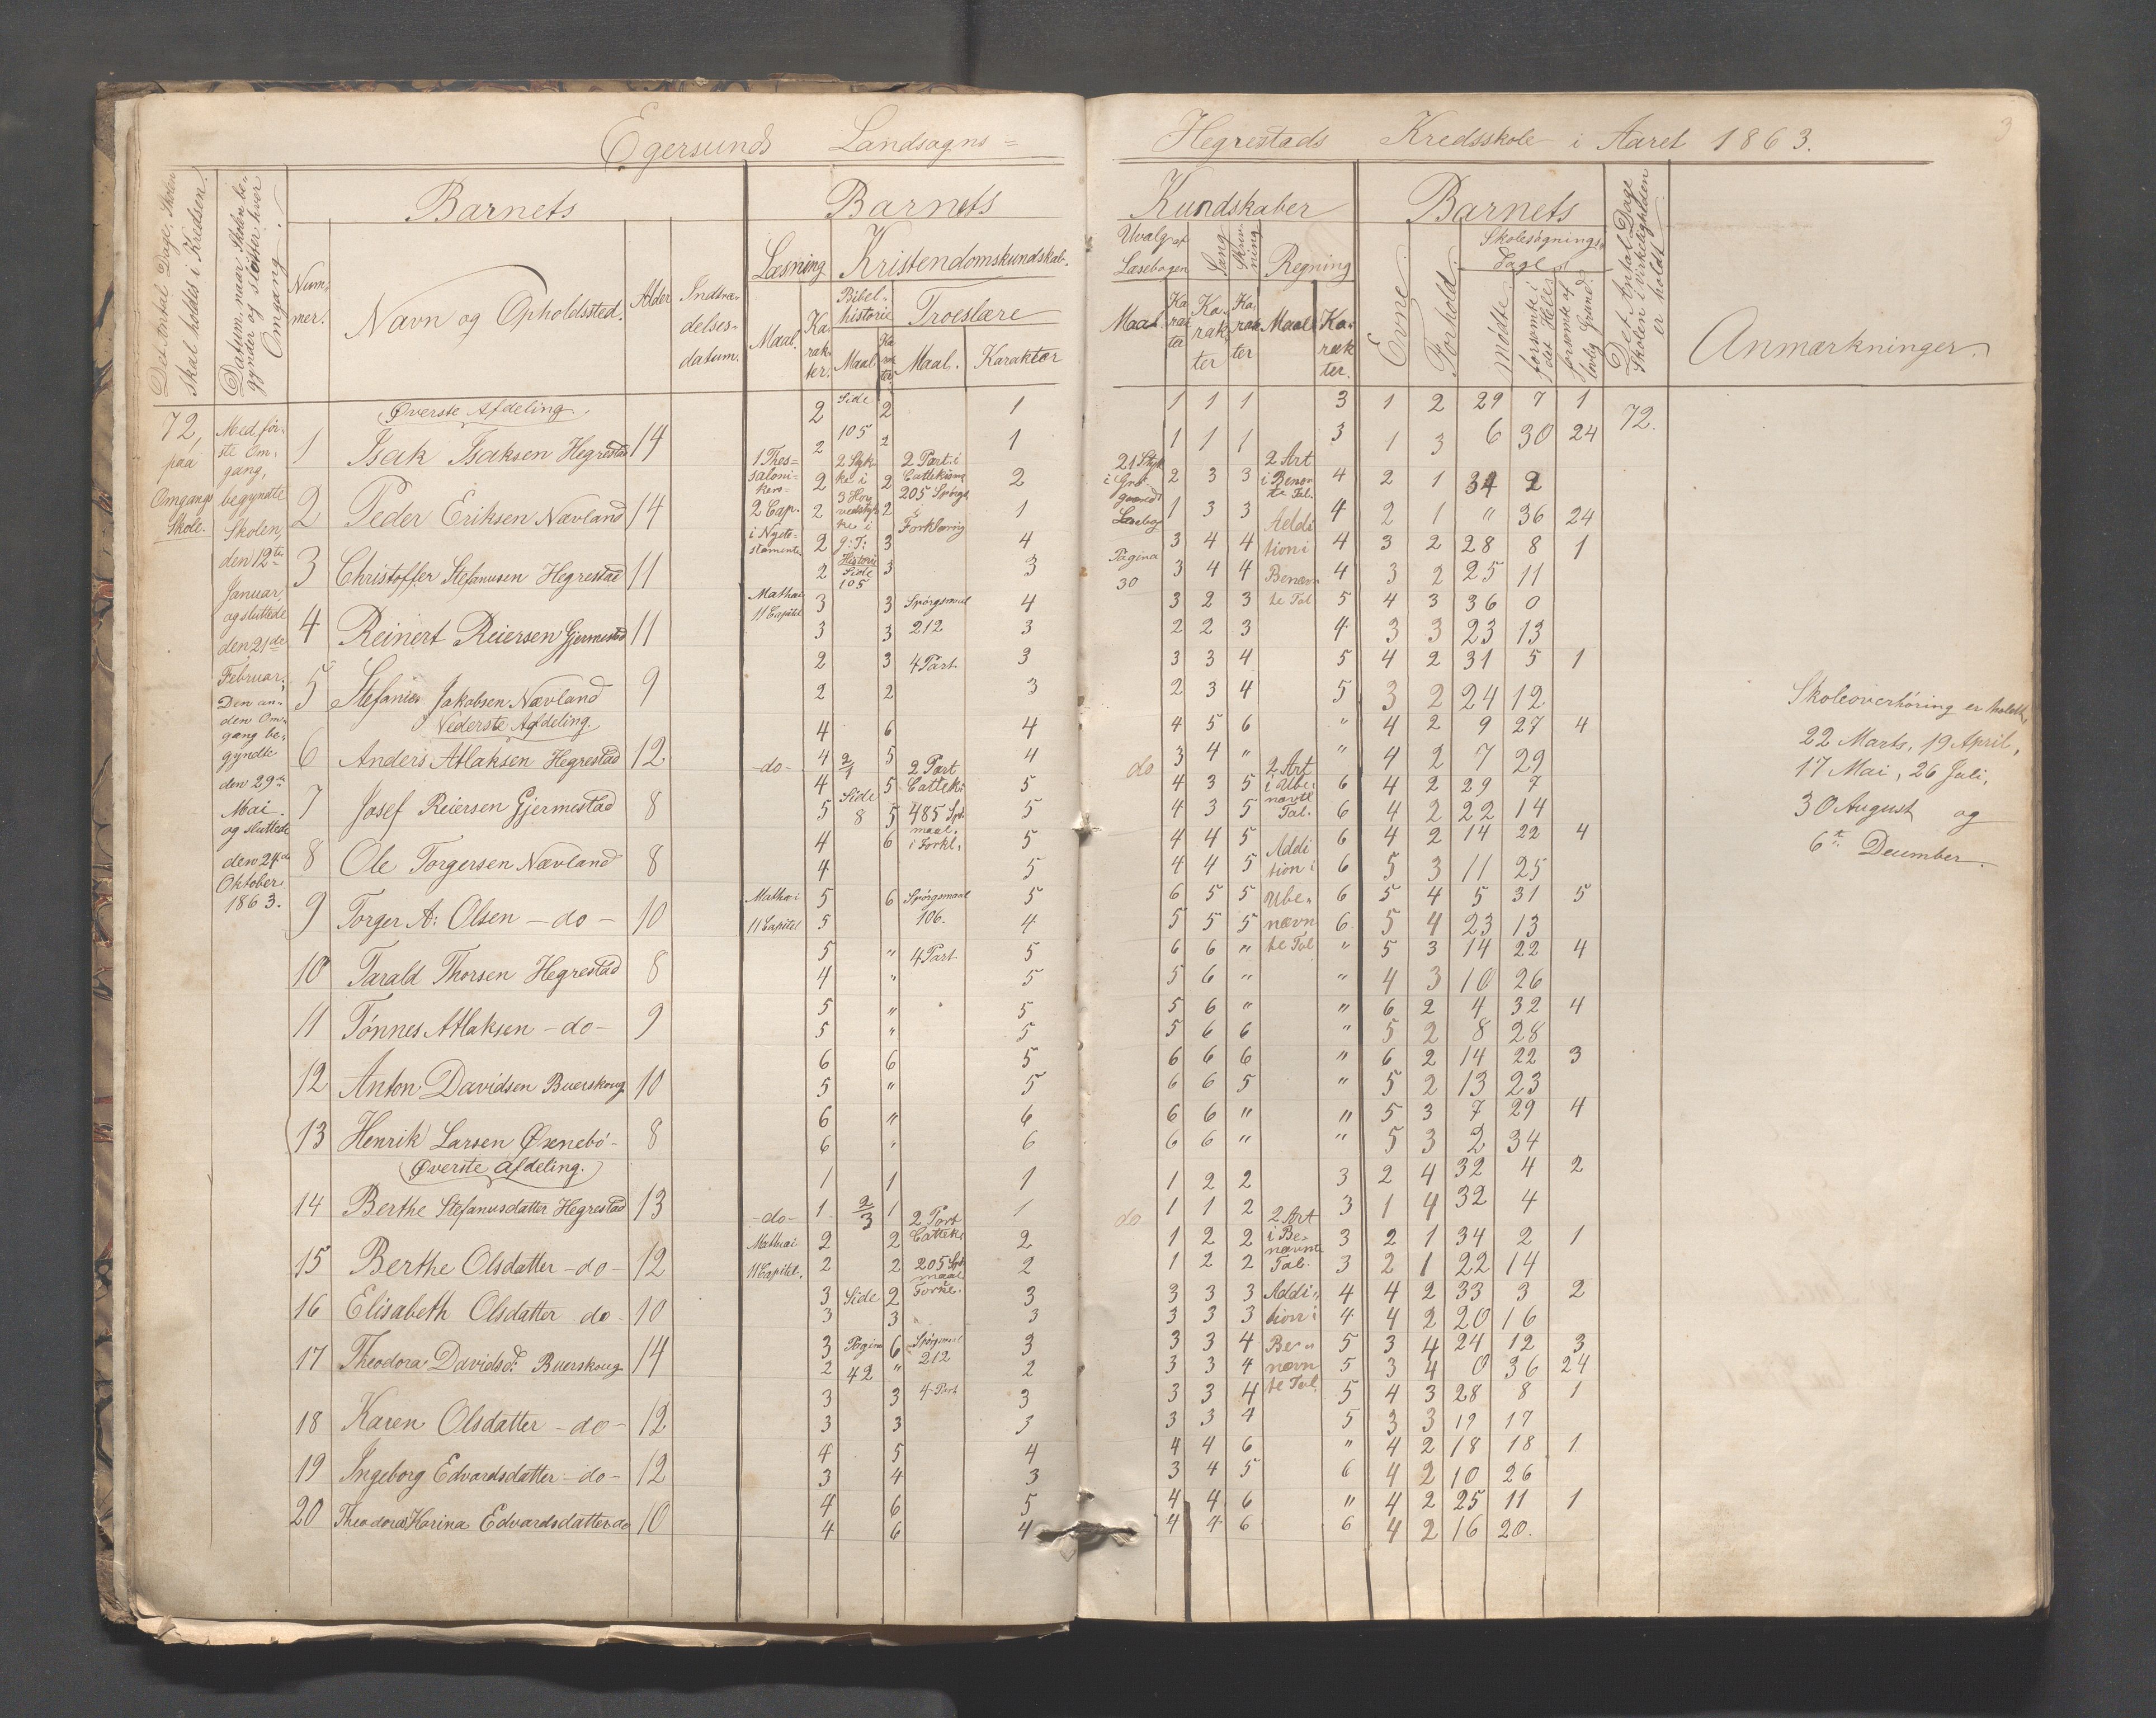 Egersunds Landsogns =
Hegrestads Kredsskole i Aaret 1863.
3
Det Antal Dage, Skolen skal holdes i Kredsen.
Datum, naar Skolen begynder og slutter hver Omgang.
Barnets
Nummer.
Navn og Opholdssted.
Alder
Indtrædelses-datum.
Barnets
Læsning
Kristendomskundskab.
Maal.
Karakter.
Bibelhistorie
Maal
Karakter
Troeslære
Maal.
Karakter
Kundskaber
Udvalg af Læsebogen
Maal
Karakter
Sang
Karakter
Skrivning
Karakter
Regning
Maal
Karakter.
Barnets
Evne.
Forhold.
Skolesøgnings-Dage
mødte
forsømte i det Hele
forsømte af lovlig Grund.
Det Antal Dage Skolen i virkeligheden er holdt
Anmærkninger.
72, paa Omgangs Skole.
Med før-
ste Om-
gang,
begyndte
Skolen,
den 12te
Januar,
og sluttede
den 21de
Februar;
Den an-
den Om-
gang be-
gyndte
den 29de
Mai
og sluttede
den 24de
Oktober
1863.
Øverste Afdeling,
1 Isak Isaksen Hegrestad 14
2 Peder Eriksen Nævland 14
3 Christoffer Stefanusen Hegrestad 11
4 Reinert Reiersen Gjermestad 11
5 Stefanus Jakobsen Nævland 9
Nederste Afdeling.
6 Anders Atlaksen Hegrestad 12
7 Josef Reiersen Gjermestad 8
8 Ole Torgersen Nævland 8
9 Torger A: Olsen - do - 10
10 Tarald Thorsen Hegrestad 8
11 Tønnes Atlaksen - do - 9
12 Anton Davidsen Buerskoug 10
13 Henrik Larsen Øxnebø - 8
Øverste Afdeling.
14 Berthe Stefanusdatter Hegrestad 13
15 Berthe Olsdatter - do - 12
16 Elisabeth Olsdatter do - 10
17 Theodora Davidsd: Buerskoug 14
18 Karen Olsdatter - do - 12
19 Ingeborg Edvardsdatter - do - 12
20 Theodora Harina Edvardsdatter do 10
1 Thes-
saloni-
kern-
2 Cap.
i Nyete-
stamente
Mathæi
11 Capitel
- do -
Mathæi
11 Capitel
- do -
Mathæi
11 Capitel.
Side
105
2 Styk-
ke i
3 Hov
vedstyk
ke i
g: T:
Historie
Side
105
2/1
Side
8
2/3
Side
Pagina
42
2 Part i
Cattekisme
205 Spørgs
i
Forklaring
Spørgsmaal
212
4 Part
2 Part
Catteki
485 Spr
maal.
i Forkl.
Spørgsmaal
106.
4 Part
2 Part
Catteki
205 Spr
maal
Forkl.
Spørgsmaal
212
4 Part
21 Styk
i Grø
Læsebog
Pagina
30
do
do
2 Art
i Benævn
te Tal.
Addi
tion i
Benævn
te Tal
2 Art
i Ube-
nævnte
Tal.
Addi
tion i
Ube-
nævn
te Tal
2 Art
i Be-
nævnte
Tal.
Addi-
tion i
Be-
nævn
te Tal.
2 2 1 1 1 1 3 1 2 29 7 1 72.
2 2 1 1 1 1 3 1 3 6 30 24
2 2 2 2 3 3 4 2 1 34 2
2 2 1 1 3 3 4 2 1 " 36 24
2 3 4 3 4 4 4 3 2 28 8 1
2 3 3 3 4 4 4 3 2 25 11
3 3 4 3 2 3 5 4 3 36 0
3 3 3 2 2 3 4 3 3 23 13
2 3 3 3 3 4 5 4 2 31 5 1
2 2 3 2 3 4 5 3 2 24 12
4 6 4 4 5 6 " 4 2 9 27 4
4 5 4 3 4 " " 4 2 7 29
4 5 5 4 3 5 6 4 2 29 7
5 5 5 4 3 5 6 4 2 22 14
4 6 5 4 4 5 6 4 2 14 22 4
4 5 4 4 5 6 5 3 11 25
5 6 5 6 5 5 6 5 4 5 31 5
5 4 5 5 5 6 5 4 23 13
5 " 5 6 6 " " 5 3 14 22 4
4 " 5 5 6 " " 4 3 10 26
5 " 5 5 6 " " 6 2 4 32 4
5 " 5 5 6 6 " 5 2 8 28
6 6 5 6 6 6 " 6 2 14 22 3
5 " 5 6 6 5 " 5 2 13 23
6 " 6 6 6 " " 5 3 7 29 4
6 " 6 6 6 " " 5 3 2 34
1 1 1 1 2 2 3 2 4 32 4 2
1 1 1 1 1 2 3 1 4 32 4
2 2 2 1 2 2 3 2 1 34 2 1
2 2 2 1 2 2 3 2 1 22 14
3 2 3 3 3 3 4 4 2 33 3 2
3 3 3 3 3 3 4 4 2 20 16
3 6 3 3 3 4 5 3 4 24 12 3
2 " 2 3 3 4 5 3 4 0 36 24
3 3 3 3 3 4 5 4 3 28 8 1
3 3 3 3 3 4 5 3 3 19 17
4 5 4 4 4 6 " 4 2 18 18 1
3 4 3 3 4 5 6 4 2 10 26
4 6 5 4 4 6 " 4 2 25 11 1
4 6 4 4 4 6 6 4 2 16 20.
Skoleoverhøring er holdt,
22 Marts, 19 April,
17 Mai, 26 Juli,
30 August og
6te December.